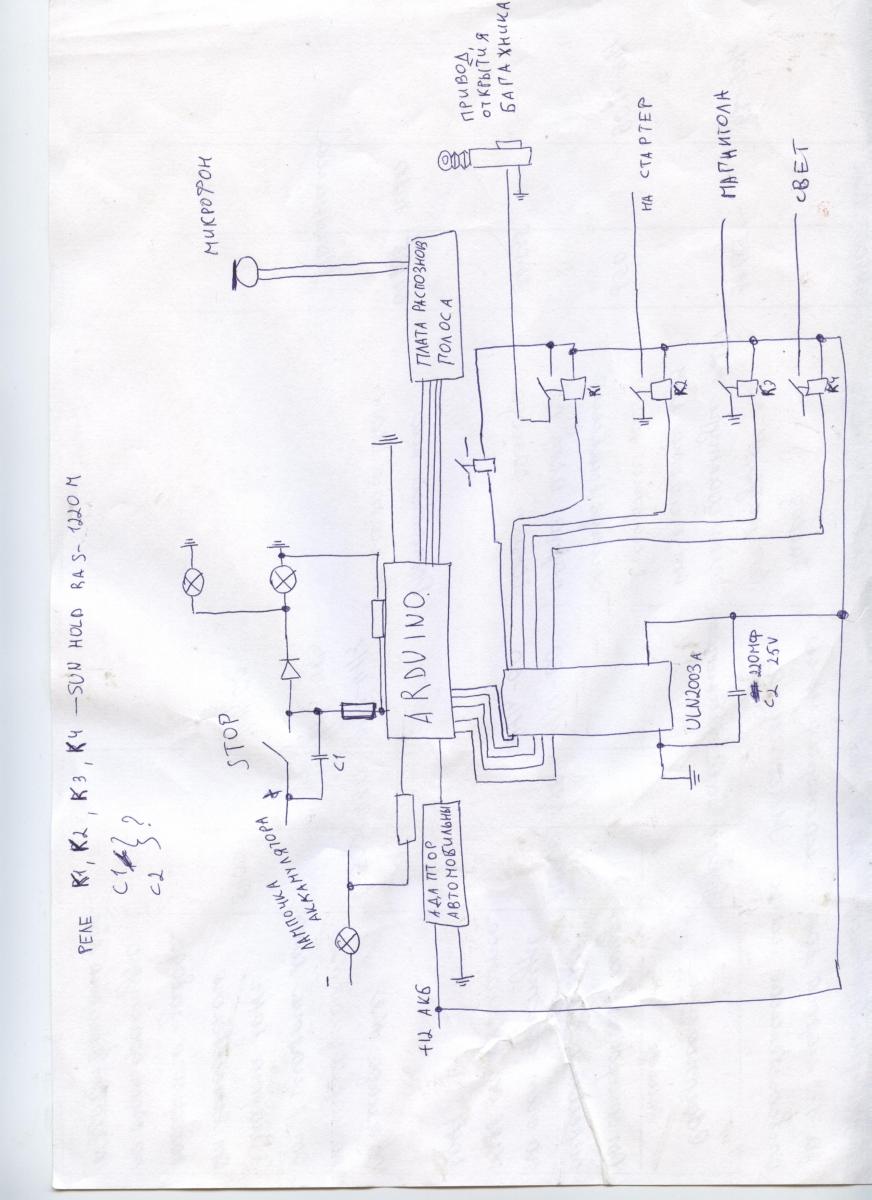 РЕЛЕ K1, K2, K3, K4 — SUN HOLD RAS-1220M
C1 } ?
C2
МИКРОФОН
STOP
C1
ЛАМПОЧКА
АККАМУЛЯТОРА
-
+
ARDUINO
ПЛАТА РАСПОЗНОВ
ПОЛОСА
АДАПТОР
АВТОМОБИЛЬНЫ
+12 АКБ
ПРИВОД
ОТКРЫТИЯ
БАГАЖНИКА
K1
НА СТАРТЕР
K2
МАГНИТОЛА
K3
СВЕТ
K4
ULN2003A
220МФ
25V
C2